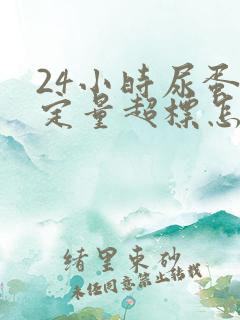 24小時尿蛋
定量超標怎
緒里束砂
未经同意禁止转载